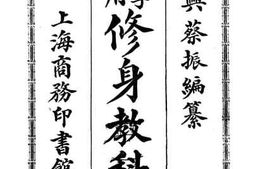 興蔡振編纂
用
修身教科
上海商務印書館